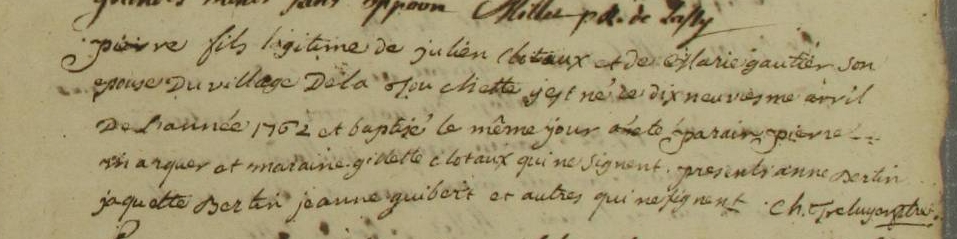 Millet p de
pierre fils légitime de julien Clotaux et de Marie gautier son
epouse Du village De la Touchette y est né le dix neuviesme avril
De L'année 1762 et baptisé le même jour a été parain pierre
marquer et maraine gillette clotaux qui ne signent. presents anne Bertin
jaquette Bertin jeanne guibert et autres qui ne signent. Ch.